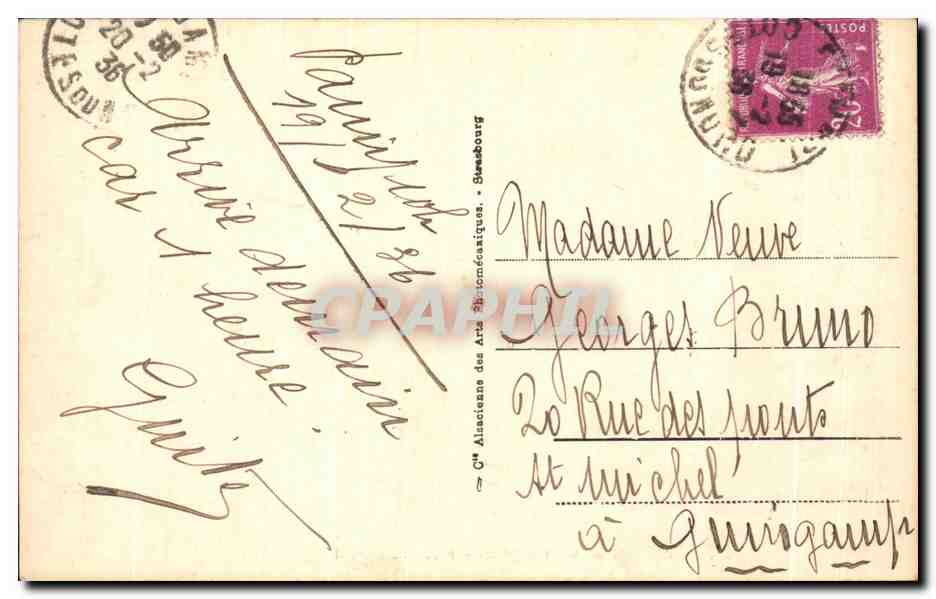 19/2/36
Arrive demain
car 1 heure
Guite
Madame Veuve
Georges Bruno
20 Rue des ponts
St Michel
à Guingamp
Cie Alsacienne des Arts Photomécaniques. - Strasbourg
CPAPHIL
20-2
36
POSTES
20c